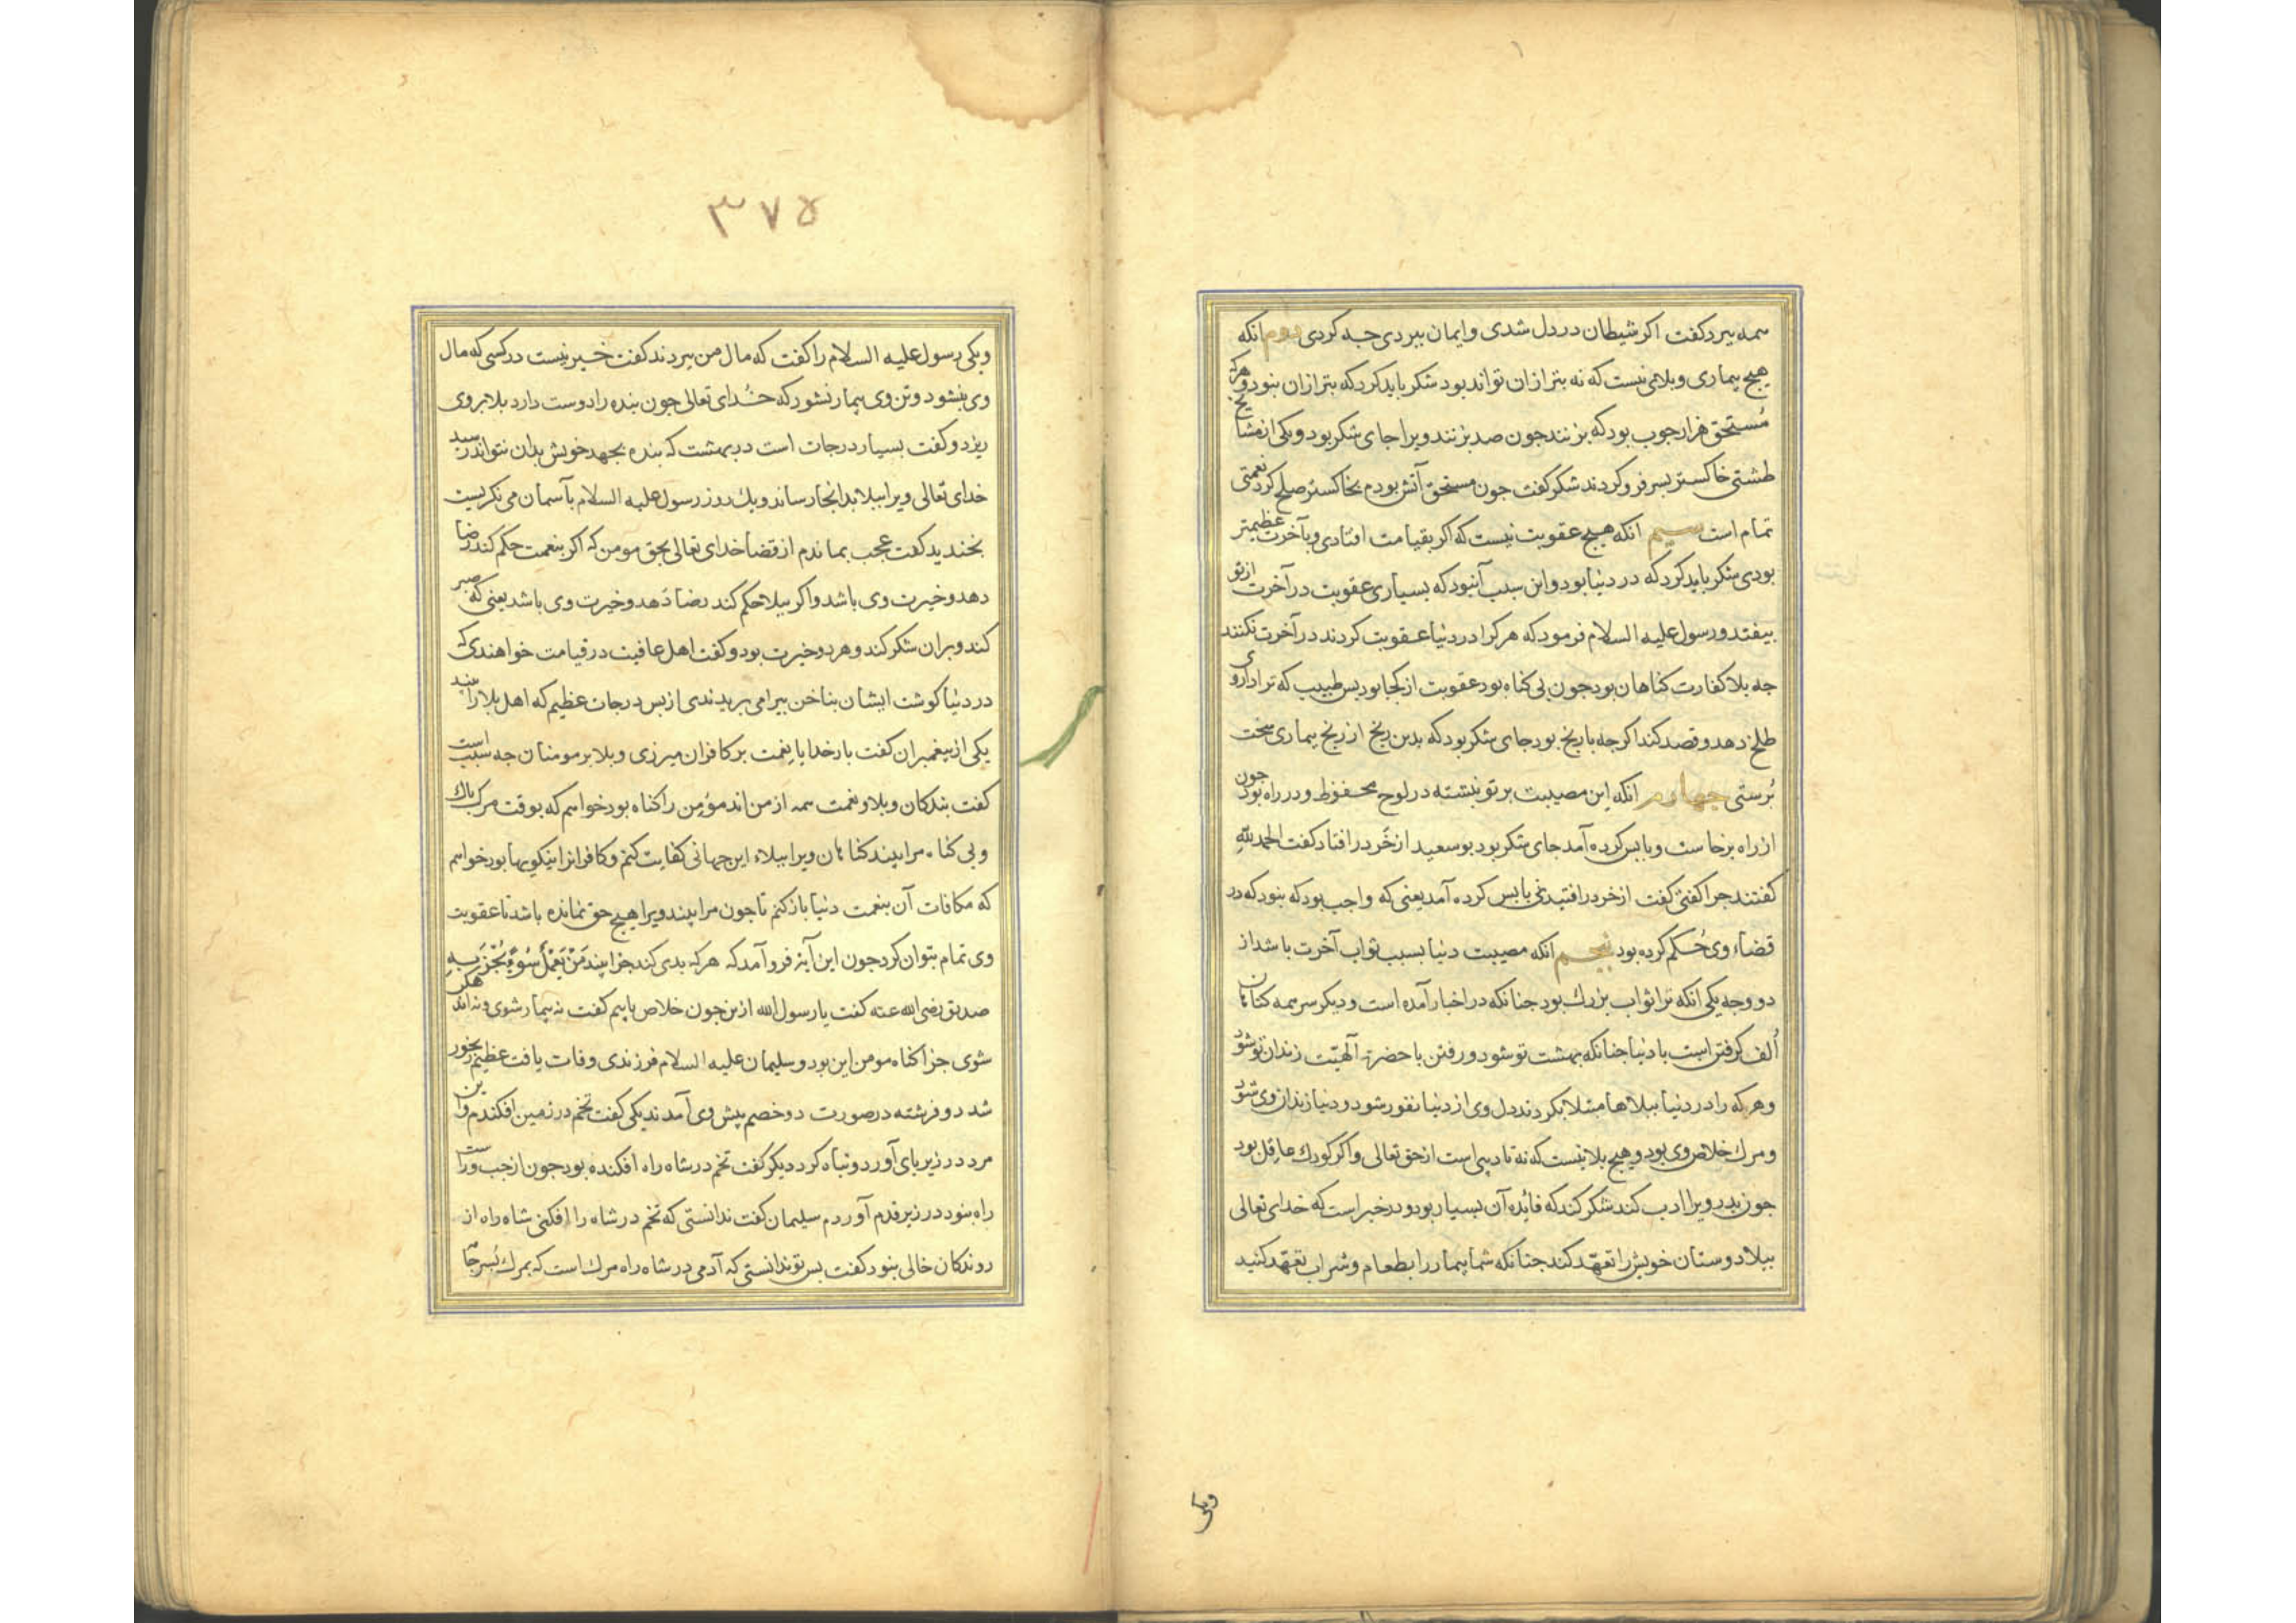 همه ببرد کفت اکر شیطان در دل شدی و ایمان ببردی جه کردی دوم انکه
هیج بیماری و بلائی نیست که نه بتر ازان تواند بود شکر باید کرد که بتر ازان نبود و هرکه
مستحق هزار جوب بود که بزنند جون صد بزنند ویرا جای شکر بود و یکی از مشایخ
طشتی خاکستر بسر فرو کردند شکر کفت جون مستحق آتش بودم بخاکستر صلح کرد نعمتی
تمام است سیم انکه هیج عقوبت نیست که اکر بقیامت افتادی و بآخرت عظیمتر
بودی شکر باید کرد که در دنیا بود و این سبب آنبود که بسیاری عقوبت در آخرت از تو
بیفتد و رسول علیه السلام فرمود که هرکرا در دنیا عقوبت کردند در آخرت نکنند
جه بلا کفارت کناهان بود جون بی کناه بود عقوبت از کجا بود بس طبیب که ترا داروی
طلخ دهد و فصد کند اکرجه با رنج بود جای شکر بود که بدین رنج از رنج بیماری سخت
برستی جهارم انکه این مصیبت بر تو نبشته در لوح محفوظ و در راه بود جون
از راه برخاست و با بس کرده آمد جای شکر بود بوسعید از خر در افتاد کفت الحمد لله
کفتند جرا کفتی کفت از خر در افتیدنی با بس کرده آمد یعنی که واجب بود که نبود که در
قضاء وی حکم کرده بود پنجم انکه مصیبت دنیا بسبب ثواب آخرت باشد از
دو وجه یکی انکه ترا ثواب بزرک بود جنانکه در اخبار آمده است و دیکر سر همه کناهان
الف کرفتن است با دنیا جنانکه بهشت تو شود و رفتن با حضرت الهیت زندان تو شود
و هرکه را در دنیا ببلاها مبتلا بکردند دل وی از دنیا نفور شود و دنیا زندان وی شود
و مرک خلاص وی بود و هیج بلا نیست که نه تادیبی است از حق تعالی و اکر کودک عاقل بود
جون بدر ویرا ادب کند شکر کند که فائده آن بسیار بود و در خبر است که خدای تعالی
ببلا دوستان خویش را تعهد کند جنانکه شما بیمار را بطعام و شراب تعهد کنید
ویکی
۳۷۵
ویکی رسول علیه السلام را کفت که مال من ببردند کفت خیر نیست در کسی که مال
وی بنشود و تن وی بیمار نشود که خدای تعالی جون بنده را دوست دارد بلا بر وی
ریزد و کفت بسیار درجات است در بهشت که بنده بجهد خویش بدان نتواند رسید
خدای تعالی ویرا ببلا بدانجا رساند و یک روز رسول علیه السلام بآسمان می نکریست
بخندید کفت عجب بماندم از قضا خدای تعالی بحق مومن که اکر بنعمت حکم کند رضا
دهد و خیرت وی باشد و اکر ببلا حکم کند رضا دهد و خیرت وی باشد یعنی که صبر
کند و بران شکر کند و هر دو خیرت بود و کفت اهل عافیت در قیامت خواهندی که
در دنیا کوشت ایشان بناخن بیرا می بریدندی از بس درجات عظیم که اهل بلا را بیند
یکی از بیغمبران کفت بار خدایا نعمت بر کافران میرزی و بلا بر مومنان جه سبب است
کفت بندکان و بلا و نعمت همه از من اند مؤمن را کناه بود خواهم که بوقت مرک باک
و بی کناه مرا بیند کناهان ویرا ببلاء این جهانی کفایت کنم و کافرانرا نیکویها بود خواهم
که مکافات آن بنعمت دنیا باز کنم تا جون مرا بیند ویرا هیج حق نمانده باشد تا عقوبت
وی تمام بتوان کرد جون این آیة فرو آمد که هرکه بدی کند جزا بیند مَنْ یَعْمَلْ سُوءً یُجْزَ بِهِ
صدیق رضی الله عنه کفت یا رسول الله ازین جون خلاص یابیم کفت نه بیمار شوی و نه اندهکن
شوی جزا کناه مومن این بود و سلیمان علیه السلام فرزندی وفات یافت عظیم رنجور
شد دو فرشته در صورت دو خصم پیش وی آمدند یکی کفت تخم در زمین افکندم و این
مرد در زیر بای آورد و تباه کرد دیکر کفت تخم در شاه راه افکنده بود جون از جب و راست
راه نبود در زیر قدم آوردم سلیمان کفت ندانستی که تخم در شاه راه افکنی شاه راه از
روندکان خالی نبود کفت بس تو ندانستی که آدمی در شاه راه مرک است که بمرک بسر جامه